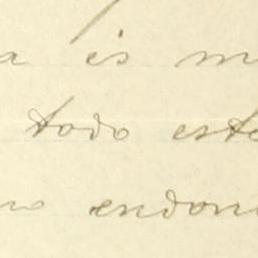 a is m
todo este
no endon